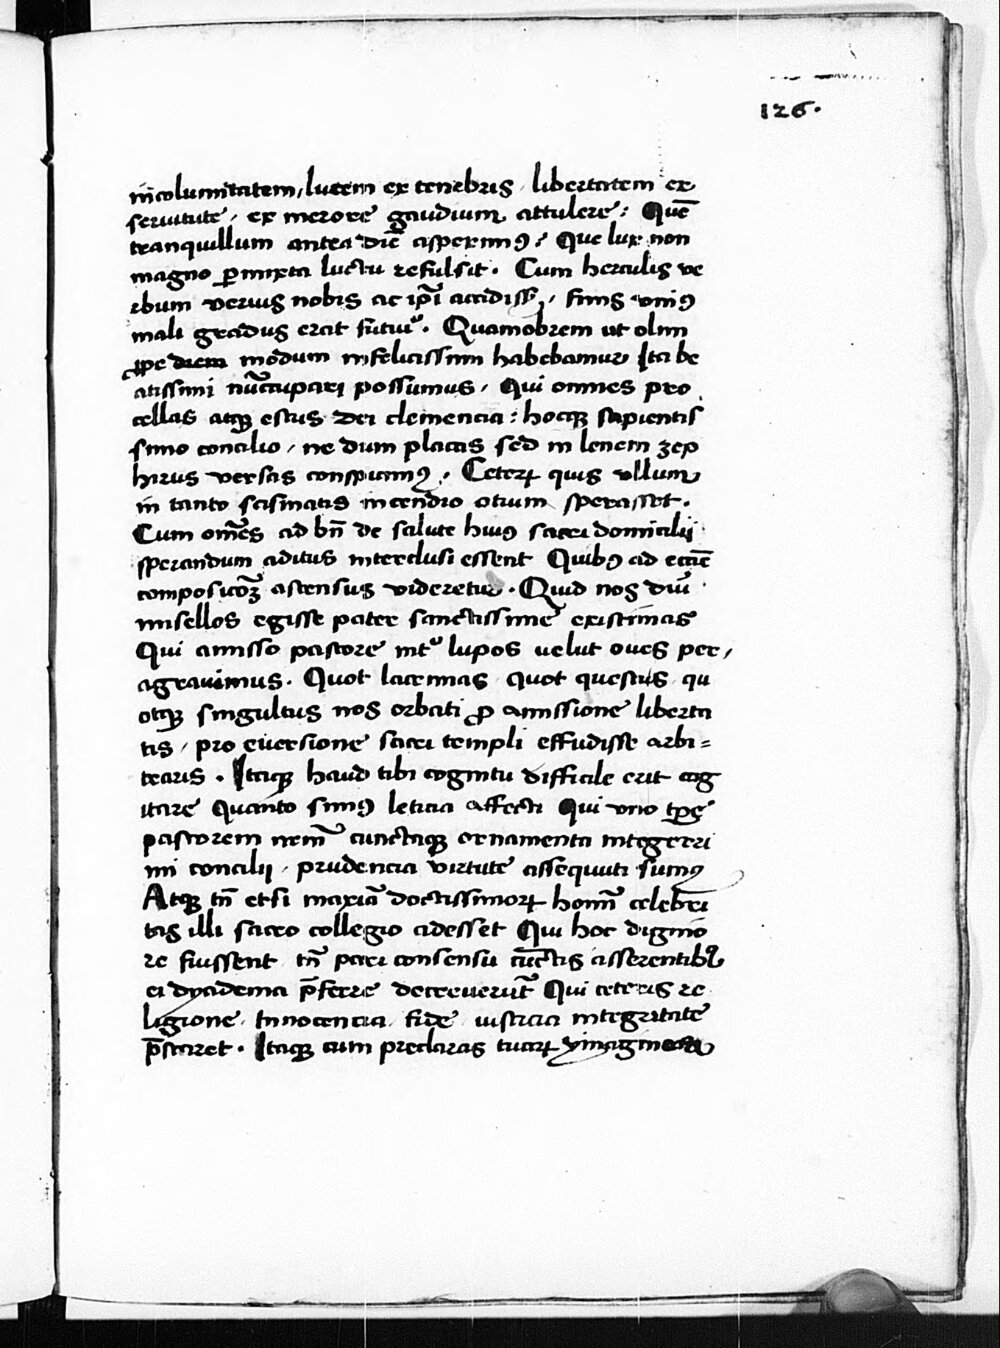 126.
incolumitatem, lucem ex tenebris, libertatem ex
seruitute, ex merore gaudium attulere: Quē
tranquillum antea diē asperimꝰ? Que lux non
magno ꝑmixta luctu refulsit. Cum herculis ve
rbum verius nobis ac ip̄i accidiss;, finis vniꝰ
mali gradus erat futuri. Quamobrem ut olim
modum infelicissimi habebamur Ita be
atissimi nūcupari possumus, Qui omnes pro
cellas atqꝫ estus dei clemencia: hocqꝫ sapientis
simo concilio, ne dum placas sed in lenem zep
hirus versas conspicimꝰ, Ceteꝝ quis vllum
in tanto scismatis incendio otium sperasset.
Cum om̄es ad bn̄ de salute huiꝰ sacri domicilii
sperandum aditus interclusi essent Quibꝰ ad eccīe
composicōꝫ ascensus videretur. Quid nos diū
misellos egisse pater sanctissime existimas
Qui amisso pastore int̉ lupos velut oues per,
agrauimus. Quot lacrimas quot questus qu
otqꝫ singultus nos orbati ꝓ amissione liberta
tis, pro euersione sacri templi effudisse arbi=
traris. Itaqꝫ haud tibi cognitu difficile erit cog
itare Quanto simꝰ leticia affecti Qui vno tp̄e
pastorem nem̄ cunctaqꝫ ornamenta integerri
mi concilij, prudencia virtute assequuti sumꝰ
Atqꝫ tn̄ etsi maxīa doctissimoꝝ homī celebri
tas illi sacro collegio adesset Qui hoc digmo
re fuissent tn̄ pari consensu cūctis asserentibꝰ
ei dyadema p̄ferre decreuerūt Qui ceteris re
ligione, Innocencia, fide, iusticia integritate
p̄staret. Itaqꝫ cum preclaras tuaꝝ